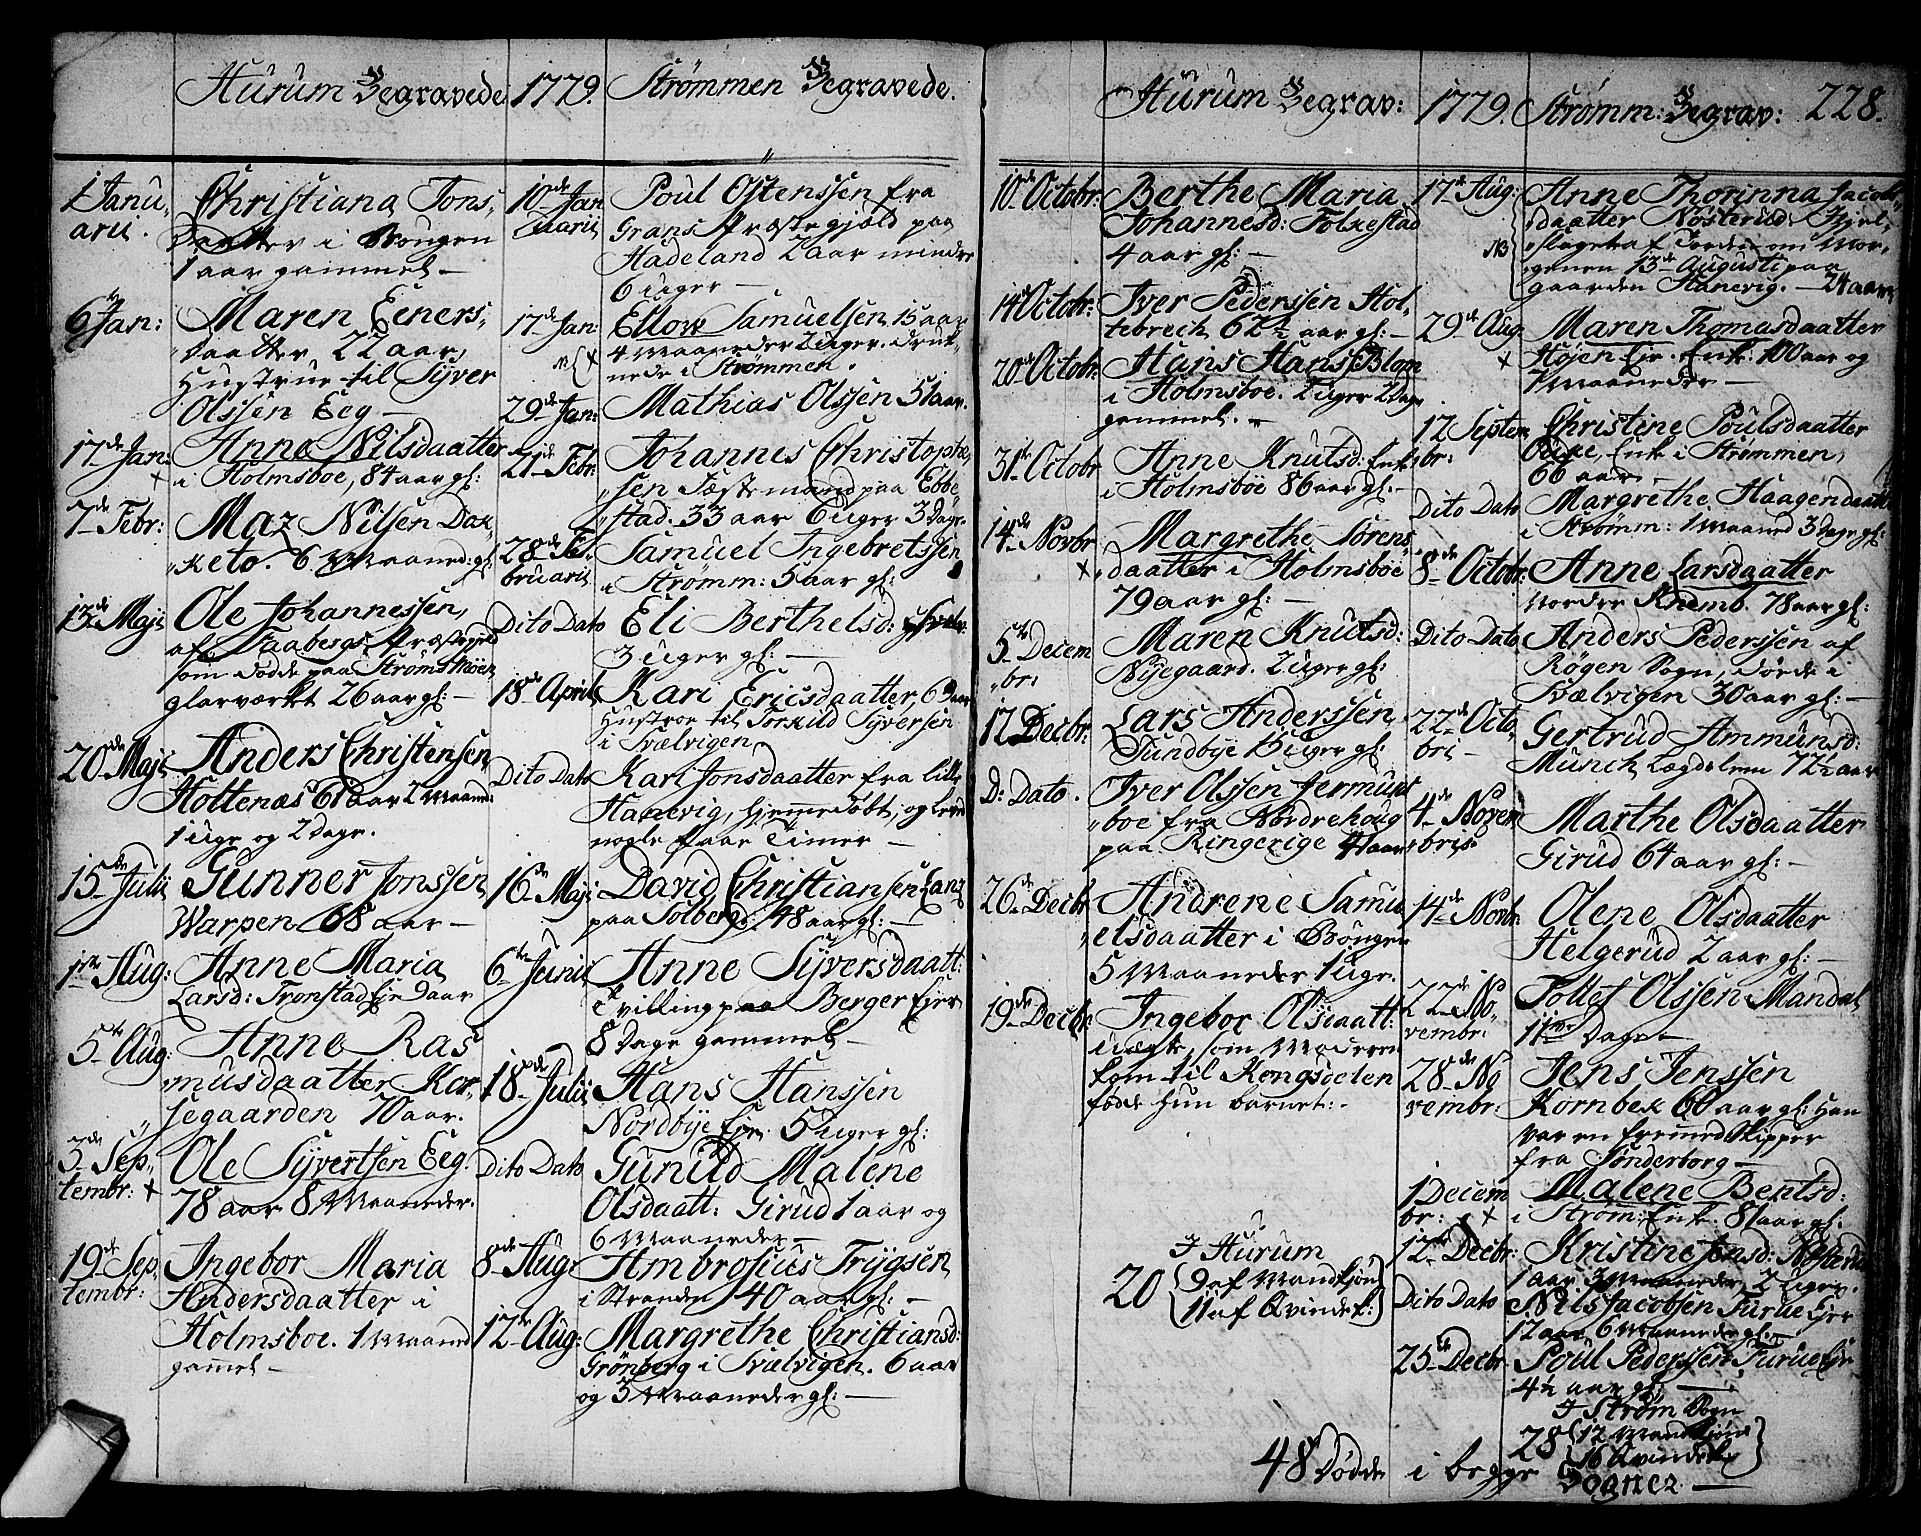 Hurum Begravede
1779.
Strømmen Begravede.
1 Janu,
arii.
Christiana Jons,
daatter i Bongen
1 aar gammel –
6te Jan:
Maren Eeners,
daatter, 22 aar,
Hustrue til Syver
Olssen Eeg –
17de Jan:
Anne Nilsdaatter
i Holmsboe, 84 aar gl:
7 Febr:
Maz Nilsen Dok,
keto. 6 Maaned: gl:
13de Maji
Ole Johannessen,
af Faabergs Præstegield
som døde paa Strøms Møen
glarværket 26 aar gl: –
20de Maji
Anders Christensen
Holtenæs 61 aar 2 Maan:
1 uge og 2 dage.
15de Julii
Gunner Jonssen
Warpen 68 aar –
1ste Aug:
Anne Maria
Larsd: Tronstad Eje
5te Aug:
Anne Ras
musdaatter Kor,
segaarden 70 aar.
3de Sep,
tembr: +
Ole Syvertsen Eeg.
78 aar 8 Maaneder.
19de Sep,
tembr:
Ingebor Maria
Andersdaatter i
Holmsboe. 1 Maaned
gamel –
10de Jan
uarii
Poul Ostenssen fra
Grans Præstegjeld paa
Hadeland 2 aar mindre
6 uger –
17de Jan:
+
Ellow Samuelsen 15 aar
4 Maaneder 2 uger. druk,
nede i Strømmen.
29de Jan:
Mathias Olssen 51 aar.
21de Febr:
Johannes Christophe,
sen Fæstemand paa Ebbe,
stad. 33 aar 6 uger 3 Dage.
28de Fe,
bruarii
Samuel Ingebretssen
i Strømm: 5 aar gl:
Dito Dato
Eli Berthelsd:
3 uger gl: –
18de April
Kari Ericsdaatter, 6
Hustroe til Torkild Syversen
i Svelvigen
Dito Dato
Kari Jonsdaatter fra lille
Hanevig, hjemmedøbt, og levde
nogle faae Timer –
16de Maji
David Christiansen
paa Solberg: 48 aar gl: –
6te Junii
Anne Syversdaatt:
Tvilling paa Berger Ejer
8 Dage gammel –
18de Julii
Hans Hanssen
Nordbye Eje. 5 uger gl:
Dito Dato
Gunild Malene
Olsdaatt: Girud 1 aar og
6 Maaneder –
8de Aug:
Ambrosius Trygsen
i Stranden 40 aar gl: –
12te Aug:
Margrethe Christiansd:
Grönberg i Svælvigen. 6 aar
og 3 Maaneder gl: –
Hurum Begrav:
1779.
Strømm: Begrav:
228.
10de Octobr:
Berthe Maria
Johannesd: Folkestad
4 aar gl: –
14de Octobr:
Iver Pederssen Hol,
tebrech, 62 ½ aar gl: –
20de Octobr:
Hans Hans: Blom
i Holmsboe. 2 uger 2 Dage
gammel. –
31te Octobr
Anne Knutsd: Enke
i Holmsböe 86 aar gl: –
14de Novbr
+
Margrethe Sörens,
daatter i Holmsboe
79 aar gl: –
5te Decem
br:
Maren Knutsd:
Nyegaard. 2 uger gl:
12 Decbr:
Lars Anderssen
Sundbye 15 uger gl:
D: Dato.
Iver Olssen Jermund
boe fra Nordrehoug
paa Ringerige 41 aar
26de Decbr
Andrene Samu
elsdaatter i Bongen
5 Maaneder 1 uge.
19de Decbr:
Ingebor Olsdaatt:
uægte, som Moderen
kom til Kongsdelen
fødde hun barnet: –
I Hurum
20 { 9 af Mandkjön
11 af Qvindek: }
17de Aug:
NB
Anne Thorinna Jacobs
daatter Nosterud. Ihjel,
slaget af Torden om Mor,
genen 13de Augusti paa
gaarden Hanevig. – 24 aar
29de Aug
+
Maren Thomasdaatter
Höjen Eje. Enke: 100 aar og
7 Maaneder –
12 Septem
br:
Christine Poulsdaatter
Enke i Strømmen,
66 aar. –
Dito Dato
Margrethe Haagensdaatt
i Strömm: 1 Maaned 3 Dage gl:
8de Octobr:
Anne Larsdaatter
Norder Knemb. 78 aar gl:
Dito Dato
Anders Pederssen af
Røgen Sogn, døde i
Svælvigen 30 aar gl: –
22de Octo,
bri –
Gertrud Ammunsd:
Munch Lægdelem 72 ½ aar
4de Novem
bris
Marthe Olsdaatter
Girud 64 aar gl: –
14de Novbr:
Olene Olsdaatter
Helgerud 2 aar gl: –
22de No
vembr:
Tollef Olssen Mandal
11 Dage –
28de No
vembr:
Jens Jenssen
Kornbek 60 aar gl: Han
var en fremmed Skipper
fra Sönderborg –
1 Decem
br: +
Malene Bentsd:
i Strøm: Enke. 81 aar gl:
12te Decbr:
Kristine Jensd: Nosterud
1 aar 3 Maaneder, 2 uger.
Dito Dato
Nils Jacobsen Turue Ejer
12 aar 6 Maaneder gl: –
25de Decbr
Poul Pederssen Turue Eje
4 ½ aar gl: –
I Ström Sogn
28 { 12 Mandkjön
16 Qvindek: }
48 Dødde i begge Sogner –